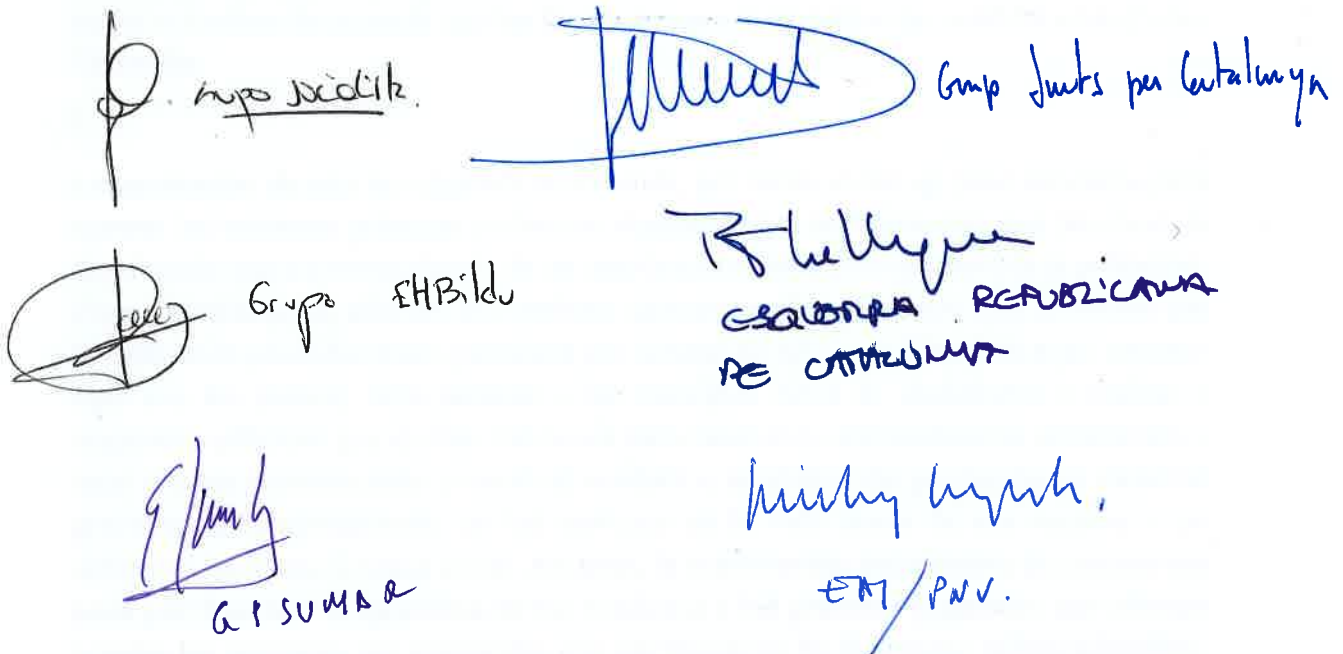 Grupo Socialista.
Grup Junts per Catalunya
Grupo EHBildu
ESQUERRA REPUBLICANA
DE CATALUNYA
GP SUMAR
EAJ/PNV.